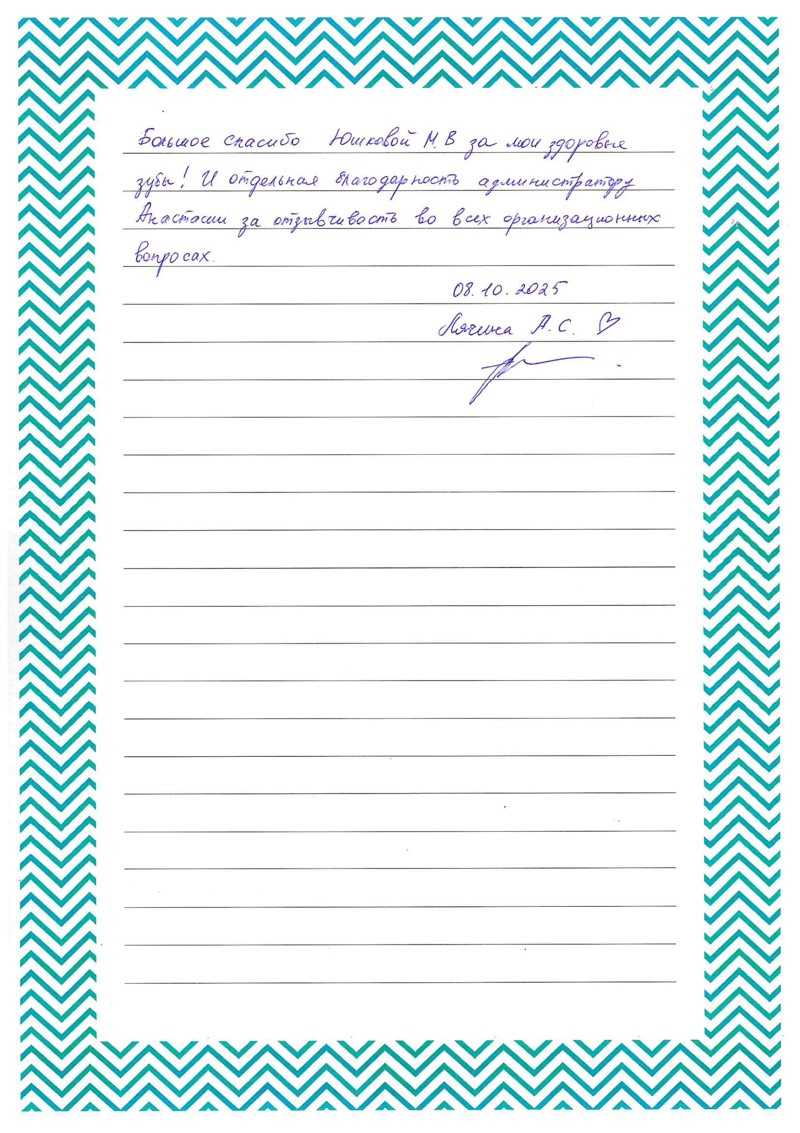 Большое спасибо Юшковой М.В за мои здоровые
зубы! И отдельная благодарность администратору
Анастасии за отзывчивость во всех организационных
вопросах.
08.10.2025
Лячина А.С.